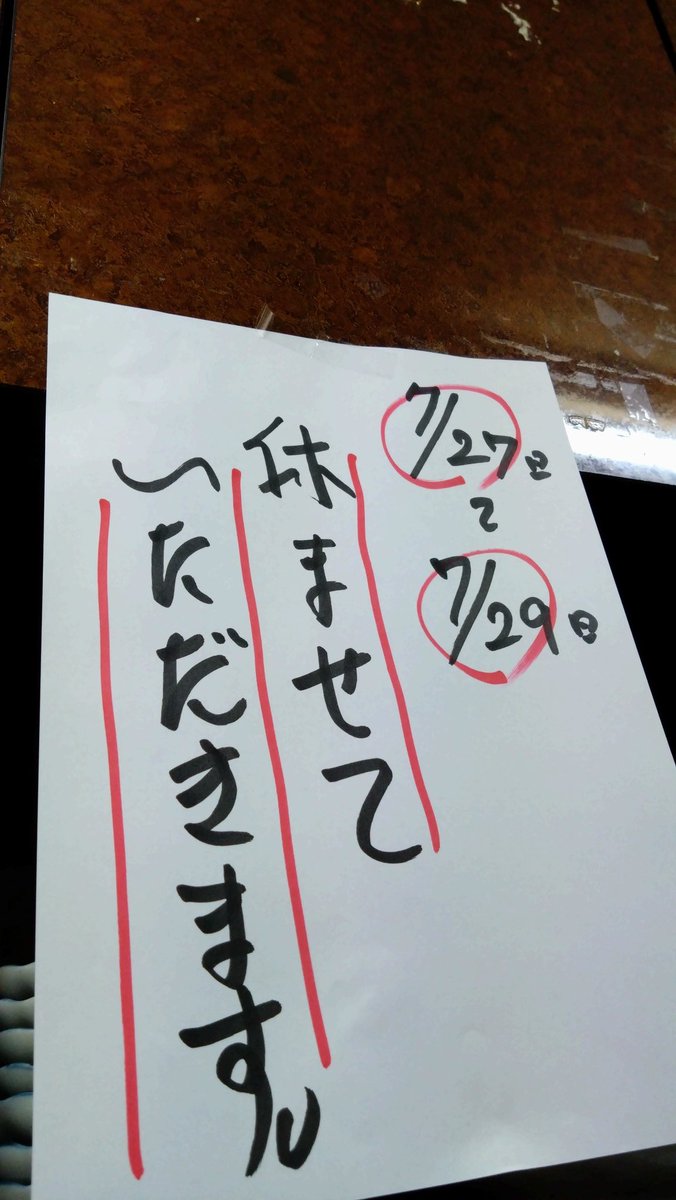 7/27日
〜
7/29日
休ませて
いただきます。